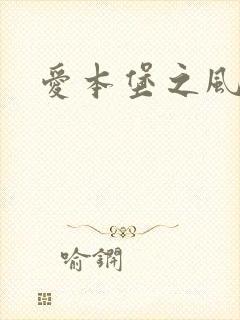 愛本堡之風
喻鐦